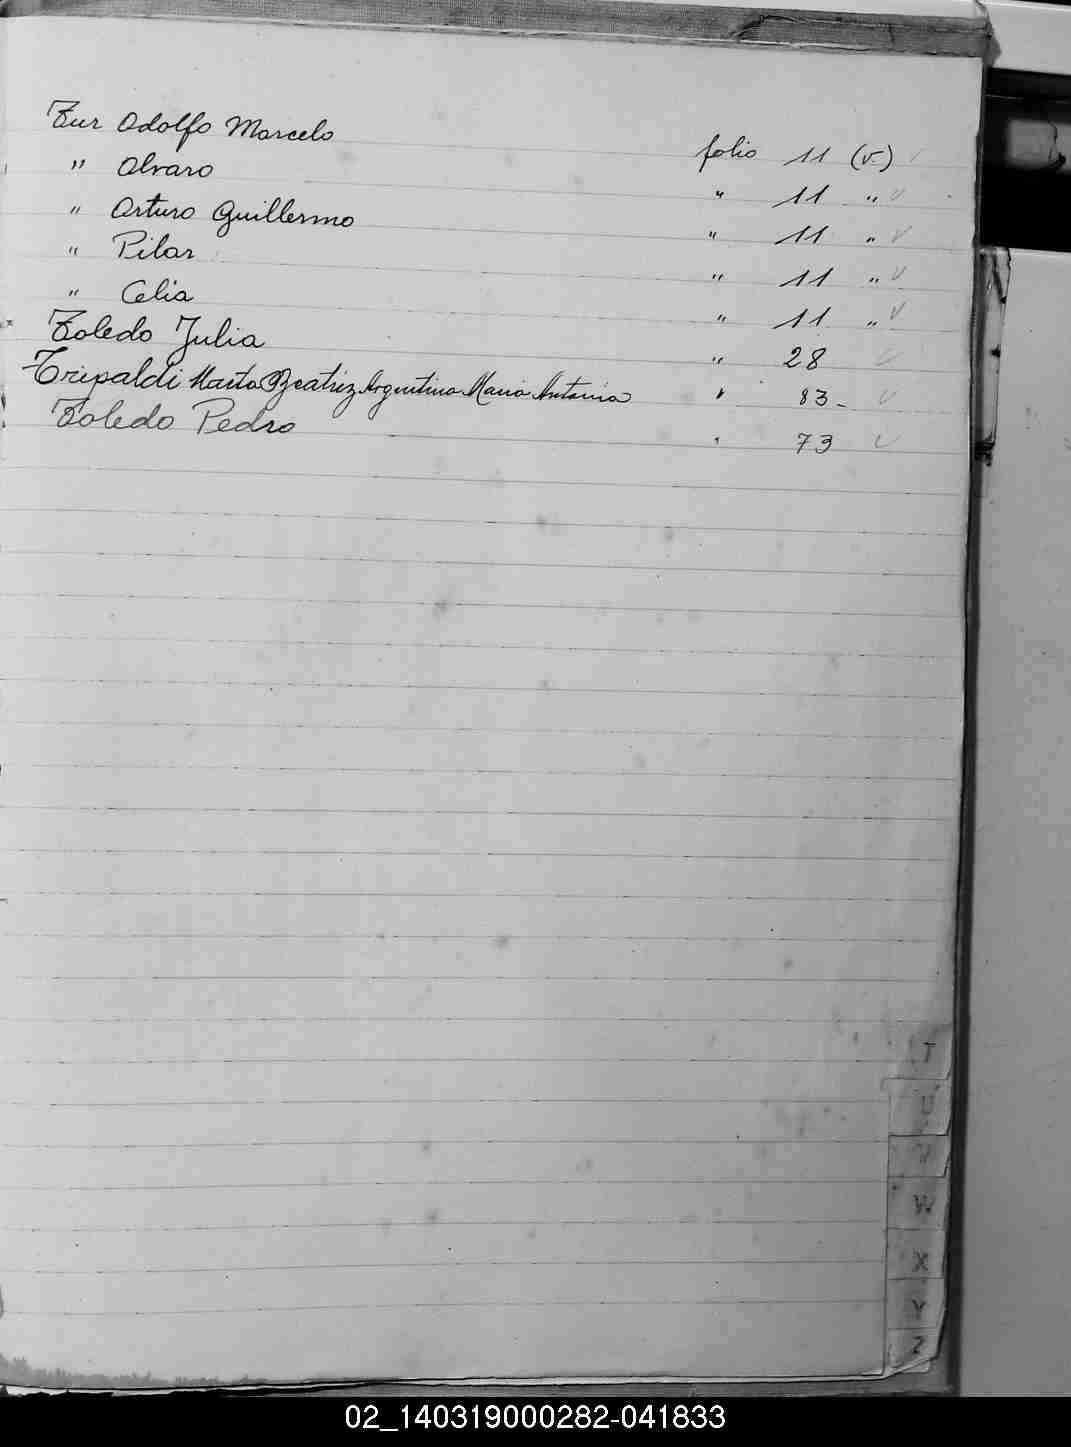 Tur Adolfo Marcelo folio 11 (v.)
" Alvaro " 11 "
" Arturo Guillermo " 11 "
" Pilar " 11 "
" Celia " 11 "
Toledo Julia " 28
Tripaldi Marta Beatriz Argentina Maria Antonia " 83-
Toledo Pedro " 73
T
U
V
W
X
Y
Z
02_140319000282-041833